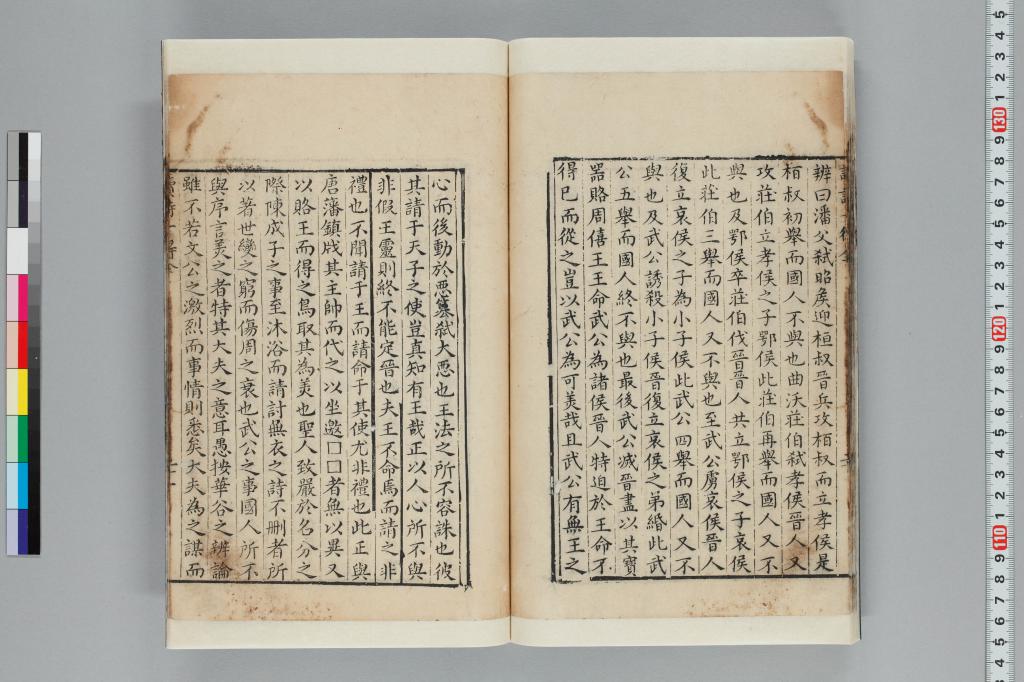 辨曰潘父弑昭侯迎桓叔晉兵攻栢叔而立孝侯是
栢叔初舉而國人不與也曲沃莊伯弑孝侯晉人又
攻莊伯立孝侯之子鄂侯此莊伯再舉而國人又不
與也及鄂侯卒莊伯伐晉晉人共立鄂侯之子哀侯
此莊伯三舉而國人又不與也至武公虜哀侯晉人
復立哀侯之子為小子侯此武公四舉而國人又不
與也及武公誘殺小子侯晉復立哀侯之弟緡此武
公五舉而國人終不與也最後武公滅晉盡以其寶
噐賂周僖王王命武公為諸侯晉人特迫於王命不
得已而從之豈以武公為可羙哉且武公有無王之
心而後動於悪簒弑大悪也王法之所不容誅也彼
其請于天子之使豈真知有王哉正以人心所不與
非假王靈則終不能定晉也夫王不命焉而請之非
禮也不聞請于王而請命于其使尤非禮也此正與
唐藩鎮戕其主帥而代之以坐邀囗囗者無以異又
以賂王而得之鳥取其為羙也聖人致嚴於名分之
際陳成子之事至沐浴而請討無衣之詩不删者所
以著世變之窮而傷周之衰也武公之事國人所不
與序言羙之者特其大夫之意耳愚按華谷之辨論
雖不若文公之激烈而事情則悉矣大夫為之謀而